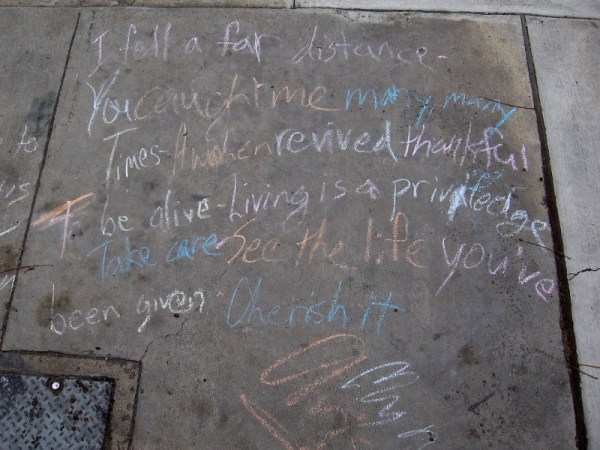 I fell a far distance-
You caught me many, many
Times- Awoken revived thankful
to
To be alive-Living is a priviledge
Take care-See the life you've
been given. Cherish it